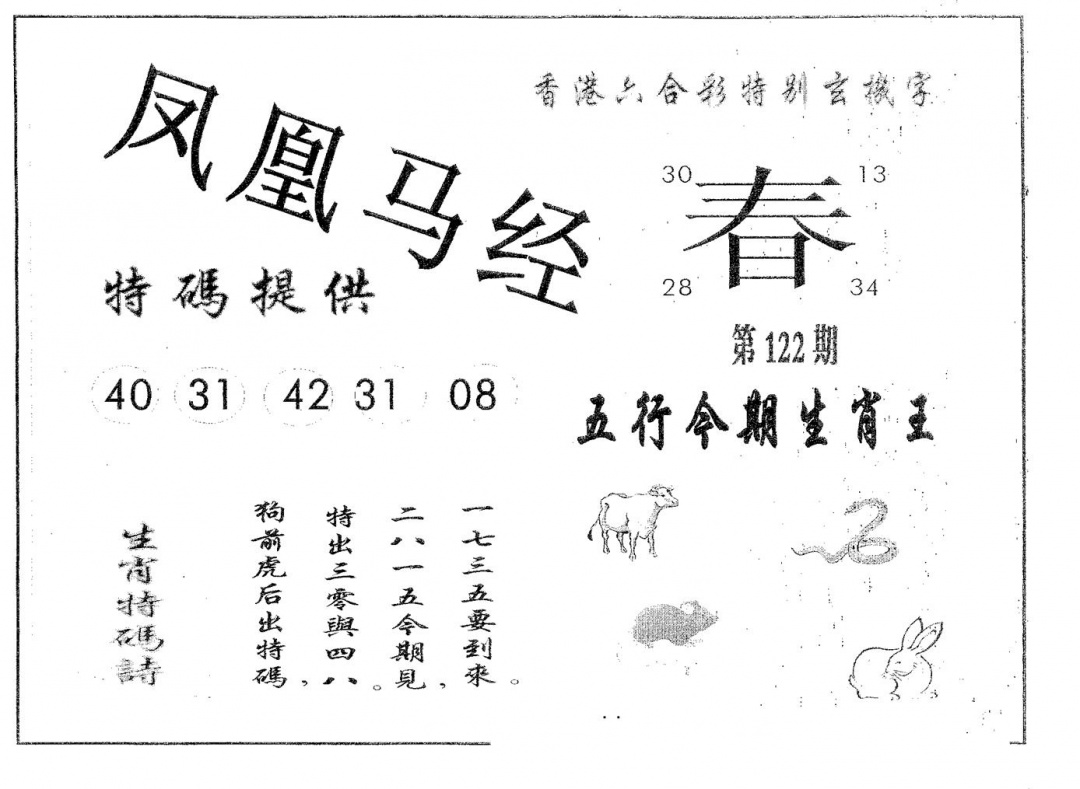 凤凰马经
香港六合彩特别玄機字
30 13
春
28 34
特碼提供
第122期
40 31 42 31 08
五行今期生肖王
生肖特碼詩
狗前虎后出特碼，
特出三零與四八。
二八一五今期見，
一七三五要到來。